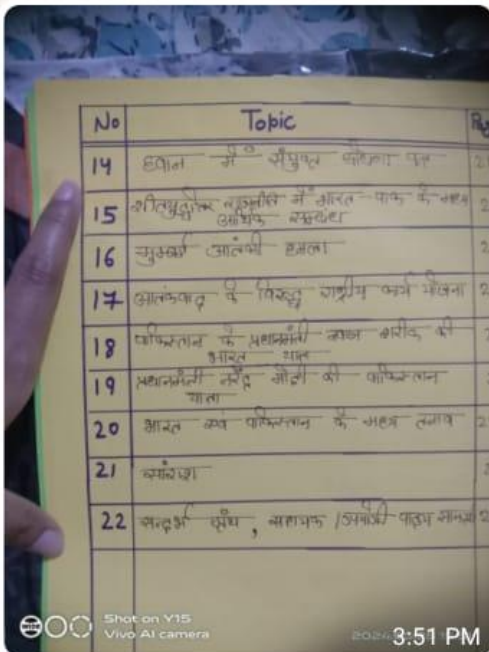 No Topic
14 हवान में संयुक्त घोषणा पत्र 2
15 शीतयुद्धोत्तर राजनीति में भारत पाक के मध्य 2
आर्थिक सम्बन्ध
16 मुम्बई आतंकी हमला 2
17 आतंकवाद के विरुद्ध राष्ट्रीय कार्य योजना 2
18 पाकिस्तान के प्रधानमंत्री नवाज शरीफ की
भारत यात्रा
19 प्रधानमंत्री नरेंद्र मोदी की पाकिस्तान
यात्रा
20 भारत एवं पाकिस्तान के मध्य तनाव 2
21 सारांश
22 सन्दर्भ ग्रंथ, सहायक / उपयोगी पाठ्य सामग्री 2
Shot on Y15
Vivo AI camera
3:51 PM